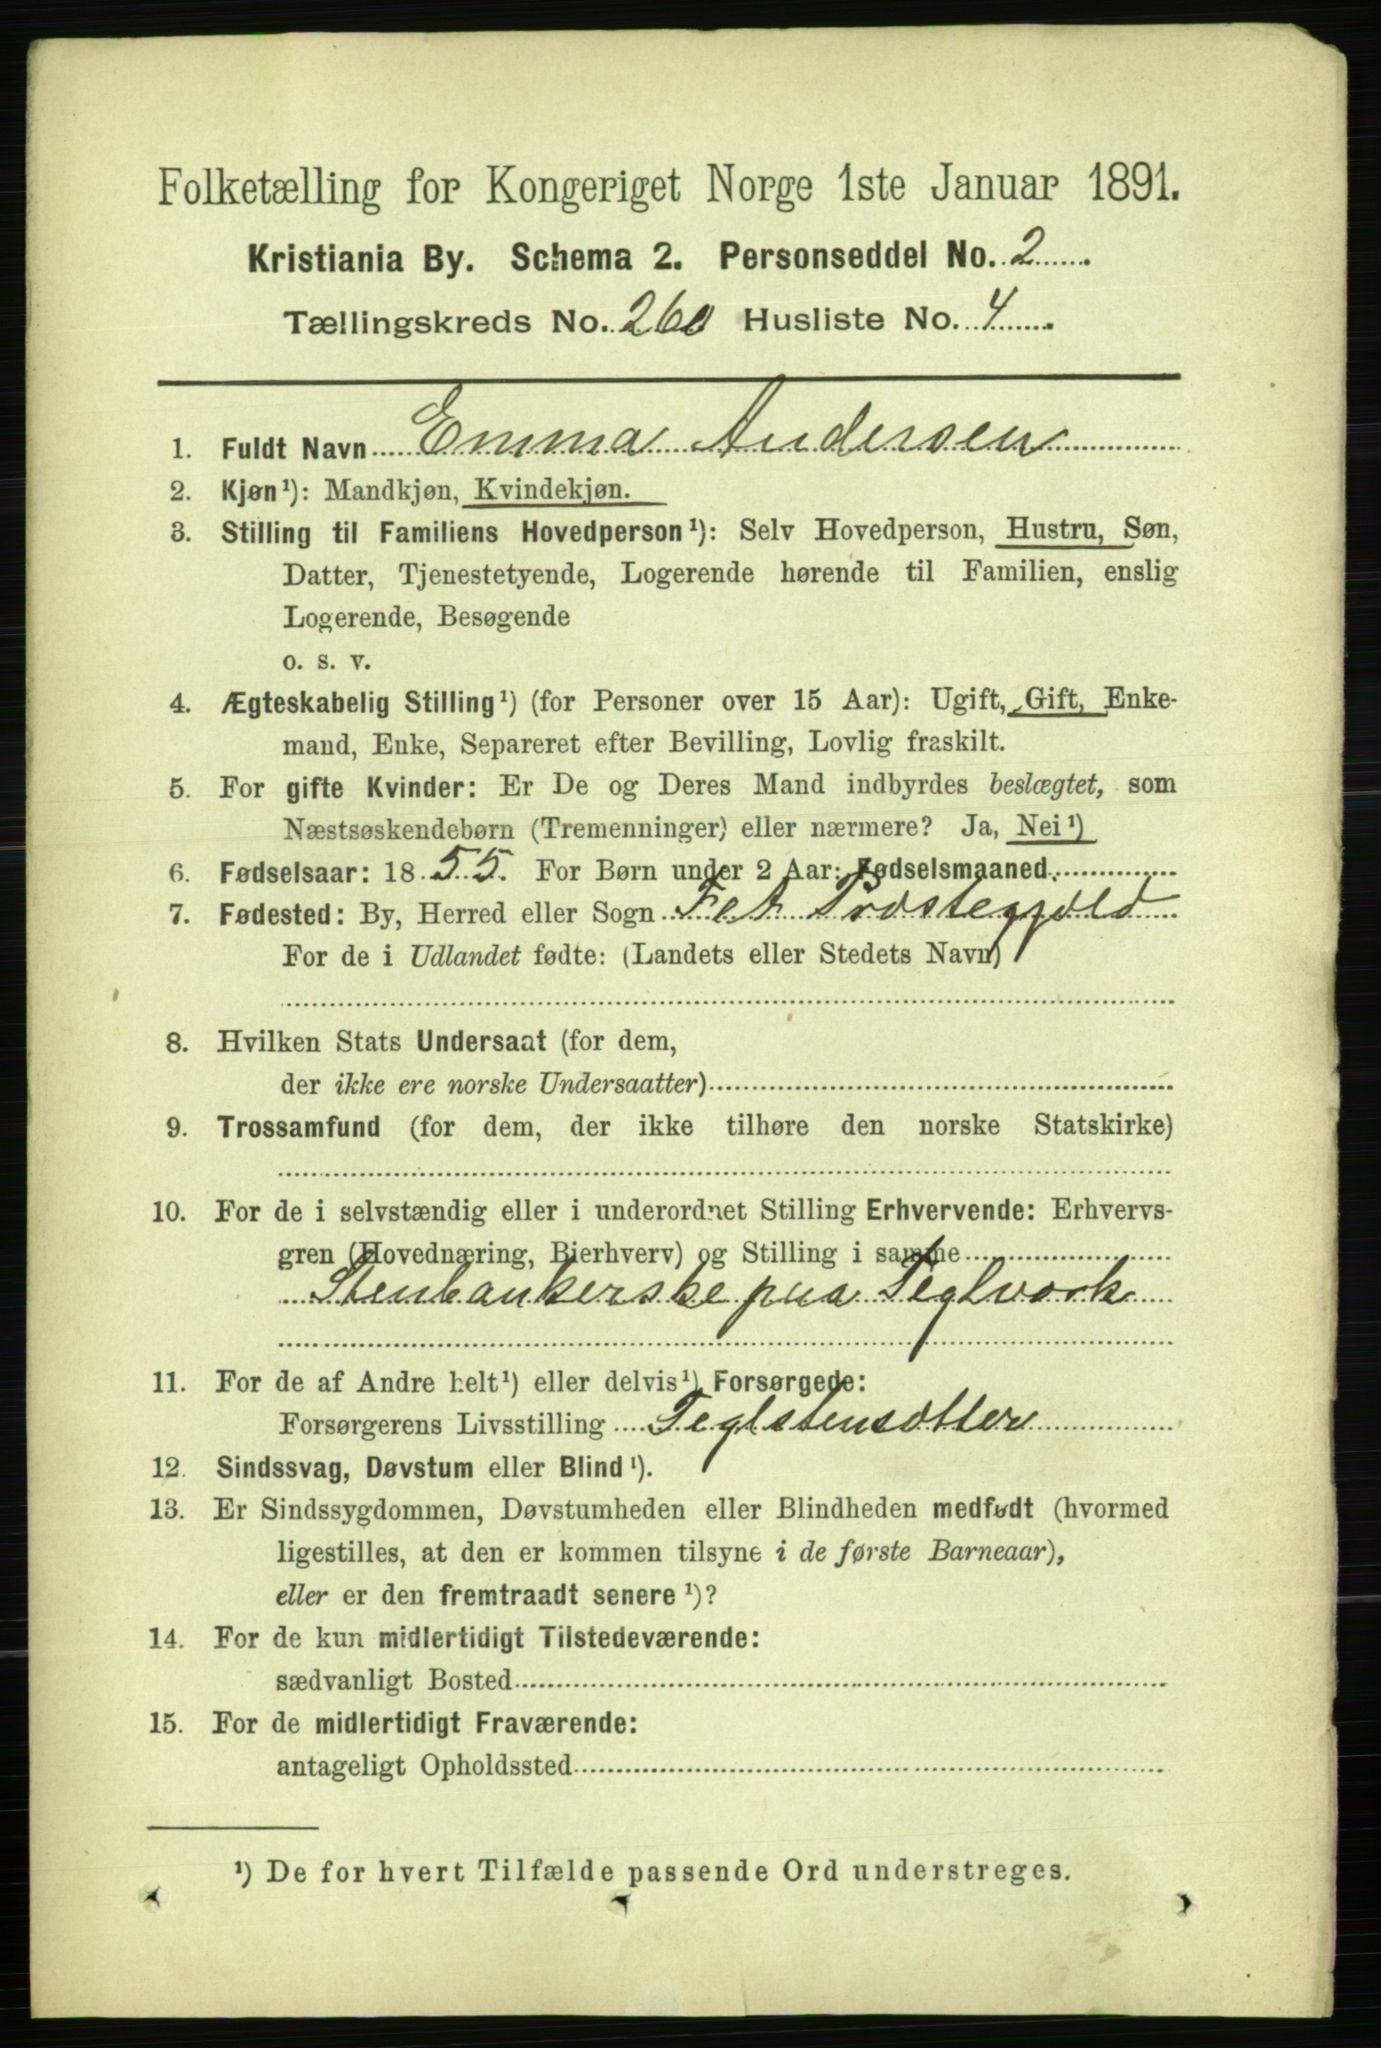 Folketælling for Kongeriget Norge 1ste Januar 1891.
Kristiania By. Schema 2. Personseddel No. 2
Tællingskreds No. 260 Husliste No. 4
1. Fuldt Navn Emma Andersen
2. Kjøn¹): Mandkjøn, Kvindekjøn.
3. Stilling til Familiens Hovedperson¹): Selv Hovedperson, Hustru, Søn,
Datter, Tjenestetyende, Logerende hørende til Familien, enslig
Logerende, Besøgende
o. s. v.
4. Ægteskabelig Stilling¹) (for Personer over 15 Aar): Ugift, Gift, Enke-
mand, Enke, Separeret efter Bevilling, Lovlig fraskilt.
5. For gifte Kvinder: Er De og Deres Mand indbyrdes beslægtet, som
Næstsøskendebørn (Tremenninger) eller nærmere? Ja, Nei¹)
6. Fødselsaar: 1855. For Børn under 2 Aar: Fødselsmaaned
7. Fødested: By, Herred eller Sogn Fet Præstegjæld
For de i Udlandet fødte: (Landets eller Stedets Navn)
8. Hvilken Stats Undersaat (for dem,
der ikke ere norske Undersaatter)
9. Trossamfund (for dem, der ikke tilhøre den norske Statskirke)
10. For de i selvstændig eller i underordnet Stilling Erhvervende: Erhvervs-
gren (Hovednæring, Bierhverv) og Stilling i samme
Stenbankerske paa Teglværk
11. For de af Andre helt¹) eller delvis¹) Forsørgede:
Forsørgerens Livsstilling Teglstensætter
12. Sindssvag, Døvstum eller Blind¹).
13. Er Sindssygdommen, Døvstumheden eller Blindheden medfødt (hvormed
ligestilles, at den er kommen tilsyne i de første Barneaar),
eller er den fremtraadt senere¹)?
14. For de kun midlertidigt Tilstedeværende:
sædvanligt Bosted
15. For de midlertidigt Fraværende:
antageligt Opholdssted
¹) De for hvert Tilfælde passende Ord understreges.